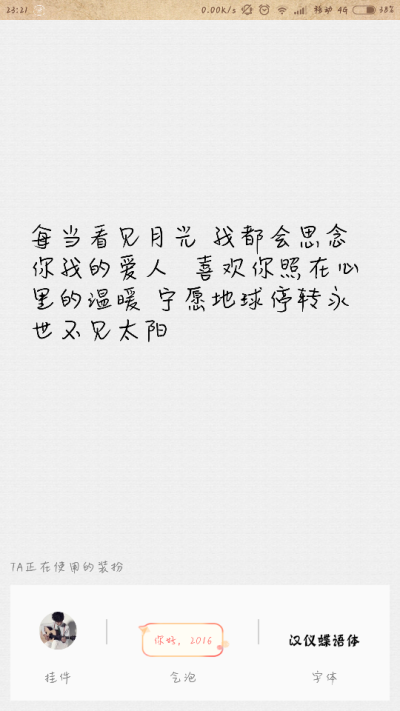 23:21 0.00K/s 移动 4G 38%
每当看见月光 我都会思念
你我的爱人 喜欢你照在心
里的温暖 宁愿地球停转永
世不见太阳
TA正在使用的装扮
你好，2016 汉仪蝶语体
挂件 气泡 字体